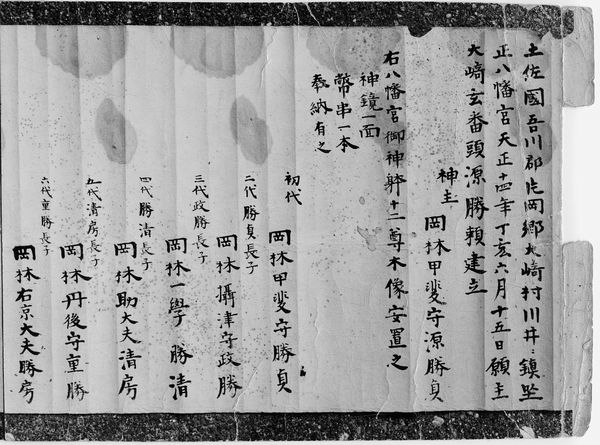 土佐國吾川郡片岡郷大崎村川井ニ鎮坐
正八幡宮天正十四年丁亥六月十五日願主
大崎玄番頭源勝頼建立
神主 岡林甲斐守源勝貞
右八幡宮御神躰十二尊木像安置之
神鏡一面
幣串一本
奉納有之
初代
岡林甲斐守勝貞
二代勝貞長子
岡林攝津守政勝
三代政勝長子
岡林一學勝清
四代勝清長子
岡林助大夫清房
五代清房長子
岡林丹後守重勝
六代重勝長子
岡林右京大夫勝房